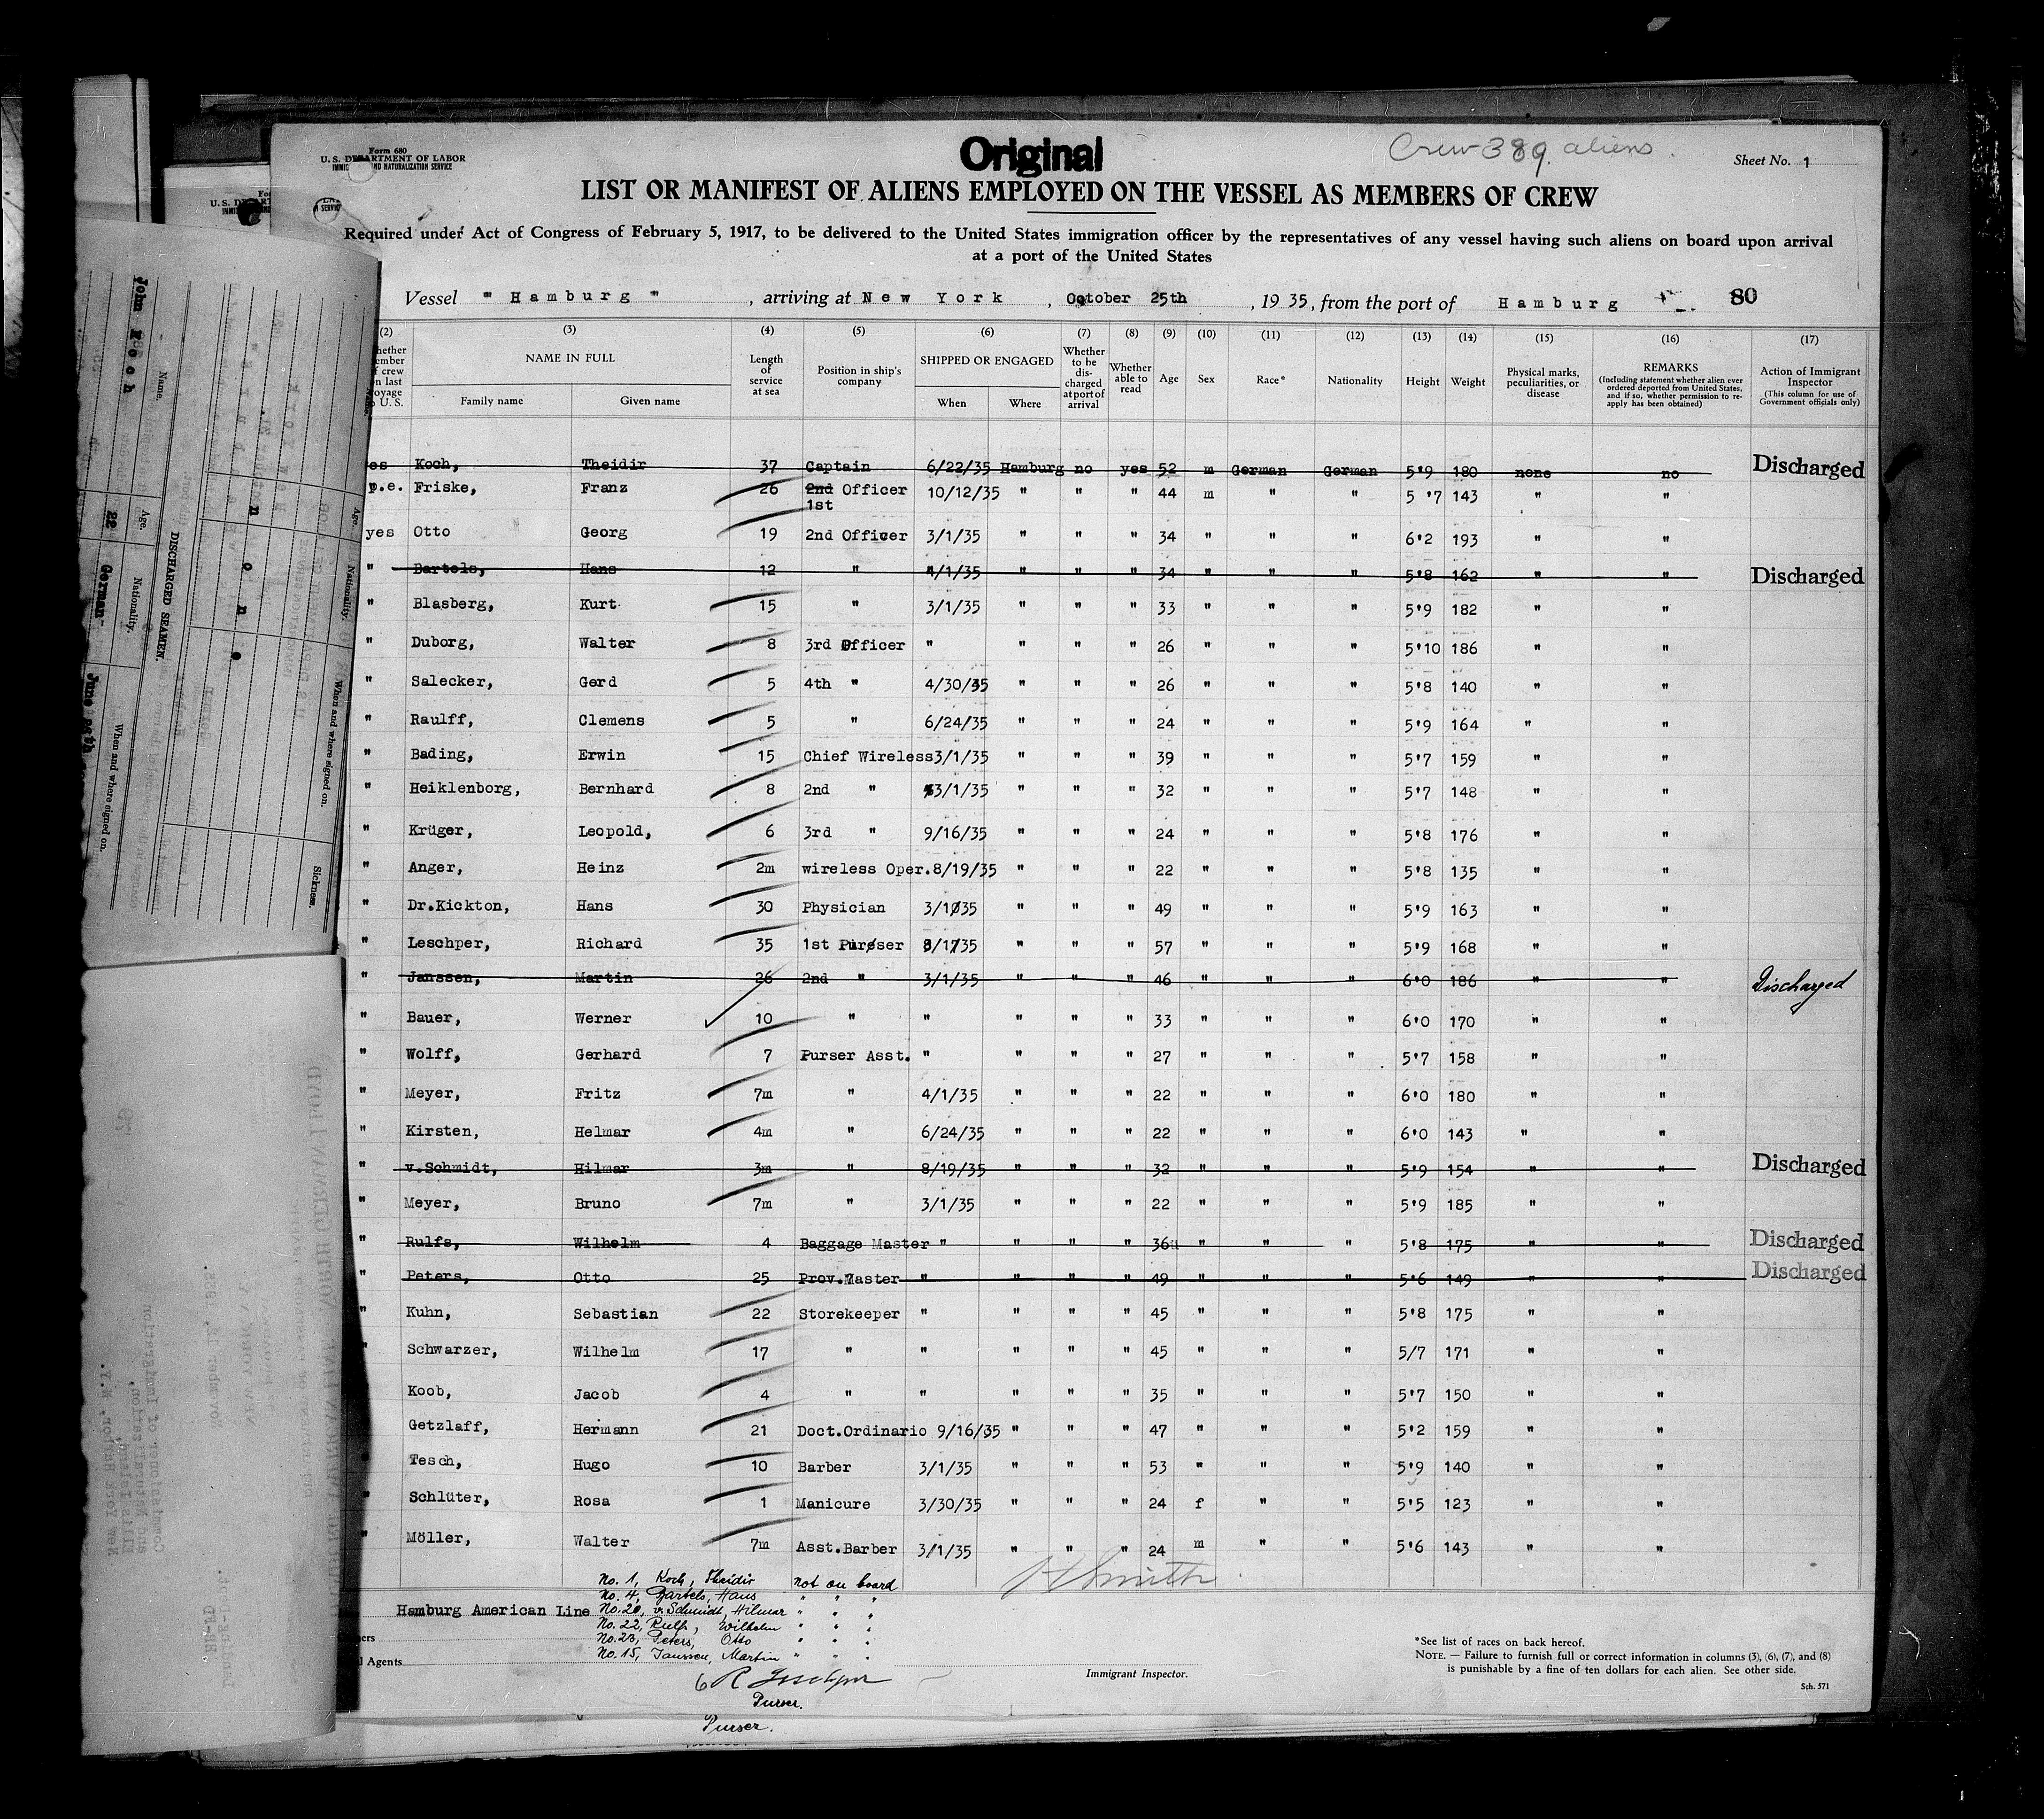 Form 680
U. S. DEPARTMENT OF LABOR
IMMIG AND NATURALIZATION SERVICE
Original
Crew 389. aliens.
Sheet No. 1
LIST OR MANIFEST OF ALIENS EMPLOYED ON THE VESSEL AS MEMBERS OF CREW
Required under Act of Congress of February 5, 1917, to be delivered to the United States immigration officer by the representatives of any vessel having such aliens on board upon arrival
at a port of the United States
Vessel "Hamburg", arriving at New York, October 25th, 1935, from the port of Hamburg 80
(2) (3) (4) (5) (6) (7) (8) (9) (10) (11) (12) (13) (14) (15) (16) (17)
NAME IN FULL Length of service at sea Position in ship's company SHIPPED OR ENGAGED Whether to be discharged at port of arrival Whether able to read Age Sex Race* Nationality Height Weight Physical marks, peculiarities, or disease REMARKS (Including statement whether alien ever ordered deported from United States, and if so, whether permission to reapply has been obtained) Action of Immigrant Inspector (This column for use of Government officials only)
Family name Given name When Where
es Koch, Theidir 37 Captain 6/22/35 Hamburg no yes 52 m German German 5'9 180 none no Discharged
p.e. Friske, Franz 26 2nd Officer 10/12/35 " " " 44 m " " 5 '7 143 " "
1st
yes Otto Georg 19 2nd Officer 3/1/35 " " " 34 " " " 6'2 193 " "
" Bartels, Hans 12 " 4/1/35 " " " 34 " " " 5'8 162 " " Discharged
" Blasberg, Kurt 15 " 3/1/35 " " " 33 " " " 5'9 182 " "
" Duborg, Walter 8 3rd Officer " " " " 26 " " " 5'10 186 " "
" Salecker, Gerd 5 4th " 4/30/35 " " " 26 " " " 5'8 140 " "
" Raulff, Clemens 5 " 6/24/35 " " " 24 " " " 5'9 164 " "
" Bading, Erwin 15 Chief Wireless 3/1/35 " " " 39 " " " 5'7 159 " "
" Heiklenborg, Bernhard 8 2nd " 3/1/35 " " " 32 " " " 5'7 148 " "
" Krüger, Leopold, 6 3rd " 9/16/35 " " " 24 " " " 5'8 176 " "
" Anger, Heinz 2m wireless Oper. 8/19/35 " " " 22 " " " 5'8 135 " "
" Dr.Kickton, Hans 30 Physician 3/1/35 " " " 49 " " " 5'9 163 " "
" Leschper, Richard 35 1st Purser 3/1/35 " " " 57 " " " 5'9 168 " "
" Janssen, Martin 26 2nd " 3/1/35 " " " 46 " " " 6'0 186 " " Discharged
" Bauer, Werner 10 " " " " " 33 " " " 6'0 170 " "
" Wolff, Gerhard 7 Purser Asst. " " " " 27 " " " 5'7 158 " "
" Meyer, Fritz 7m " 4/1/35 " " " 22 " " " 6'0 180 " "
" Kirsten, Helmar 4m " 6/24/35 " " " 22 " " " 6'0 143 " "
" v.Schmidt, Hilmar 3m " 8/19/35 " " " 32 " " " 5'9 154 " " Discharged
" Meyer, Bruno 7m " 3/1/35 " " " 22 " " " 5'9 185 " "
" Rulfs, Wilhelm 4 Baggage Master " " " " 36 " " " 5'8 175 " " Discharged
" Peters, Otto 25 Prov.Master " " " " 49 " " " 5'6 149 " " Discharged
" Kuhn, Sebastian 22 Storekeeper " " " " 45 " " " 5'8 175 " "
" Schwarzer, Wilhelm 17 " " " " " 45 " " " 5/7 171 " "
Koob, Jacob 4 " " " " " 35 " " " 5'7 150 " "
Getzlaff, Hermann 21 Doct.Ordinario 9/16/35 " " " 47 " " " 5'2 159 " "
Tesch, Hugo 10 Barber 3/1/35 " " " 53 " " " 5'9 140 " "
" Schlüter, Rosa 1 Manicure 3/30/35 " " " 24 f " " 5'5 123 " "
" Möller, Walter 7m Asst.Barber 3/1/35 " " " 24 m " " 5'6 143 " "
No. 1, Koch, Theidir not on board
No. 4, Bartels, Hans " " "
Hamburg American Line No. 20, v. Schmidt, Hilmar " " "
No. 22, Rulfs, Wilhelm " " "
No. 23, Peters, Otto " " "
No. 15, Janssen, Martin " " "
Agents
6 R Leschper
Purser.
Purser.
H Smith
Immigrant Inspector.
*See list of races on back hereof.
NOTE. — Failure to furnish full or correct information in columns (3), (6), (7), and (8)
is punishable by a fine of ten dollars for each alien. See other side.
Sch. 571
John Koch
Name.
Age.
22
Nationality.
German
When and where signed on.
DISCHARGED SEAMEN.
n o n e
Age.
Nationality.
When and where signed on.
Sickness.
NORTH GERMAN LLOYD
November 12, 1935.
Commissioner of Immigration
and Naturalization,
Ellis Island,
New York Harbor, N.Y.